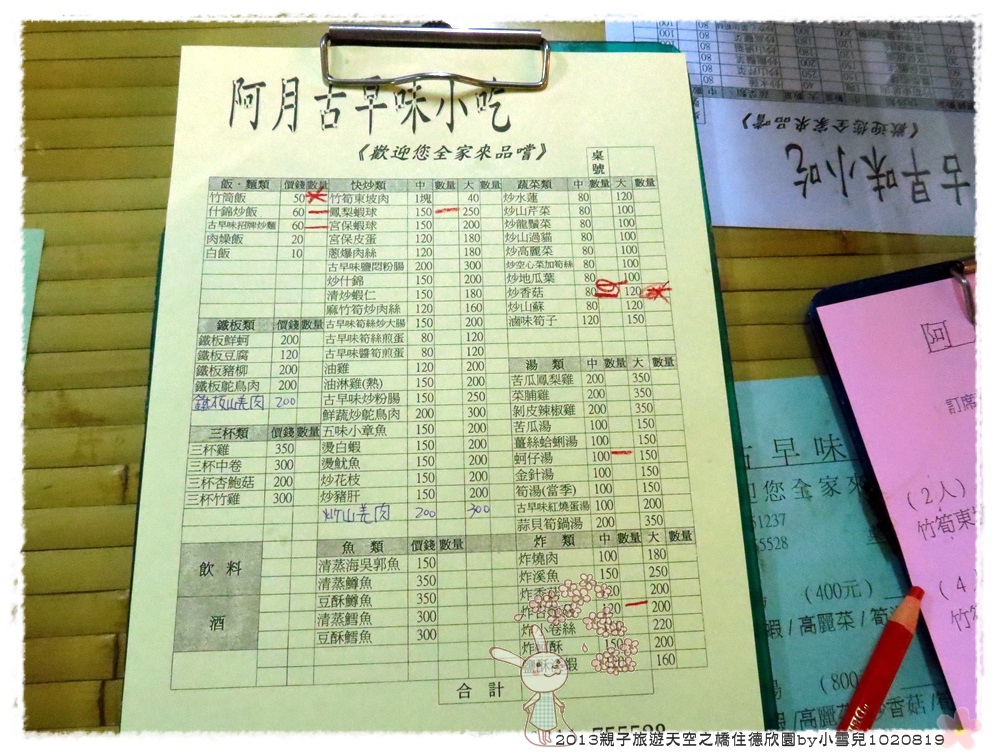 阿月古早味小吃
《歡迎您全家來品嚐》
桌號
飯.麵類 價錢 數量
竹筒飯 50
什錦炒飯 60
古早味招牌炒麵 60
肉燥飯 20
白飯 10
鐵板類 價錢 數量
鐵板鮮蚵 200
鐵板豆腐 120
鐵板豬柳 200
鐵板鴕鳥肉 200
鐵板山羌肉 200
三杯類 價錢 數量
三杯雞 350
三杯中卷 300
三杯杏鮑菇 200
三杯竹雞 300
飲料
酒
快炒類 中 數量 大 數量
竹筍東坡肉 1塊 40
鳳梨蝦球 150 250
宮保蝦球 150 200
宮保皮蛋 120 180
蔥爆肉絲 120 180
古早味鹽悶粉腸 200 300
炒什錦 150 200
清炒蝦仁 150 180
麻竹筍炒肉絲 120 160
古早味筍絲炒大腸 150 200
古早味筍絲煎蛋 80 120
古早味醬筍煎蛋 80 120
油雞 120 200
油淋雞(熱) 150 200
古早味炒粉腸 150 250
鮮蔬炒鴕鳥肉 200 300
五味小章魚 150 200
燙白蝦 150 200
燙魷魚 150 200
炒花枝 150 200
炒豬肝 150 200
炒山羌肉 200 300
魚類 價錢 數量
清蒸海吳郭魚 150
清蒸鱒魚 350
豆酥鱒魚 350
清蒸鱈魚 300
豆酥鱈魚 300
蔬菜類 中 數量 大 數量
炒水蓮 80 120
炒山芹菜 80 100
炒龍鬚菜 80 100
炒山過貓 80 100
炒高麗菜 80 100
炒空心菜加筍絲 80 100
炒地瓜葉 80 100
炒香菇 80 120
炒山蘇 80 120
滷味筍子 120 150
湯類 中 數量 大 數量
苦瓜鳳梨雞 200 350
菜脯雞 200 350
剝皮辣椒雞 200 350
苦瓜湯 100 150
薑絲蛤蜊湯 100 150
蚵仔湯 100 150
金針湯 100 150
筍湯(當季) 100 150
古早味紅燒蛋湯 100 200
蒜貝筍鍋湯 200 350
炸類 中 數量 大 數量
炸燒肉 100 180
炸溪魚 150 250
炸香菇 120 200
120 200
炸小卷絲 220
150 200
蝦 160
合計
古早味小吃
《歡迎您全家來品嚐》
阿
訂席
古早味
您全家來
51237
5528
(2人)
竹筍東
(400元)
蝦/高麗菜/筍
(4
(800
高麗菜/炒香菇/
2013親子旅遊天空之橋住德欣園by小雪兒1020819